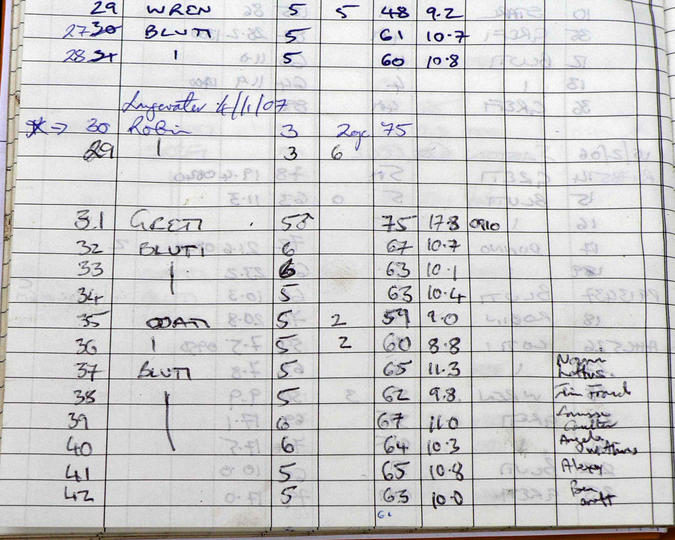 29 WREN 5 5 48 9.2
2730 BLUTI 5 61 10.7
28 31 ı 5 60 10.8
4/1/07
30 Robin 3 75
29 ı 3 6
31 GRETI 5♂ 75 17.8 0910
32 BLUTI 6 67 10.7
33 6 63 10.1
34 5 63 10.4
35 COATI 5 2 59 9.0
36 ı 5 2 60 8.8
37 BLUTI 5 65 11.3
38 5 62 9.8
39 6 67 11.0
40 6 64 10.3 Angela
41 5 65 10.8
42 5 63 10.0 Ben